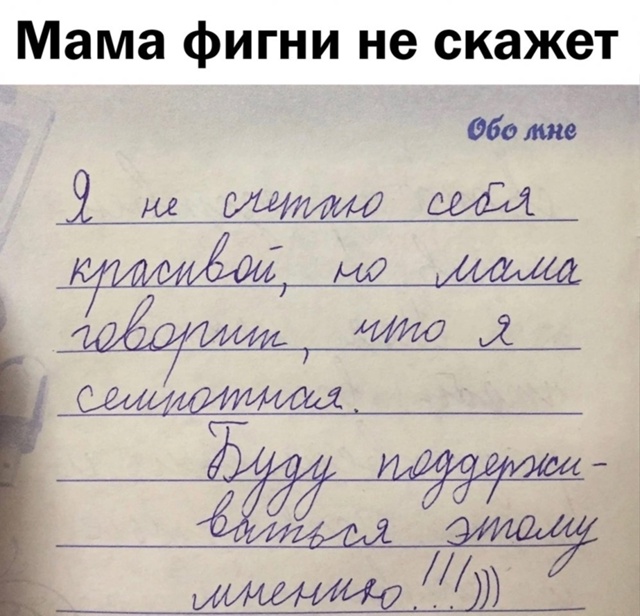 Мама фигни не скажет
Обо мне
Я не счетаю себя
красивой, но мама
говорит, что я
семпотная.
Буду поддержи-
ваться этому
мнению!!!)))